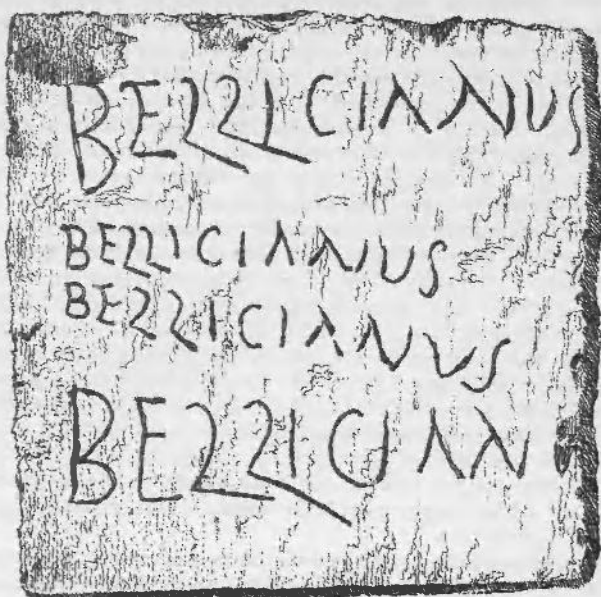 BELLICIANUS
BELLICIANUS
BELLICIANVS
BELLICIAN